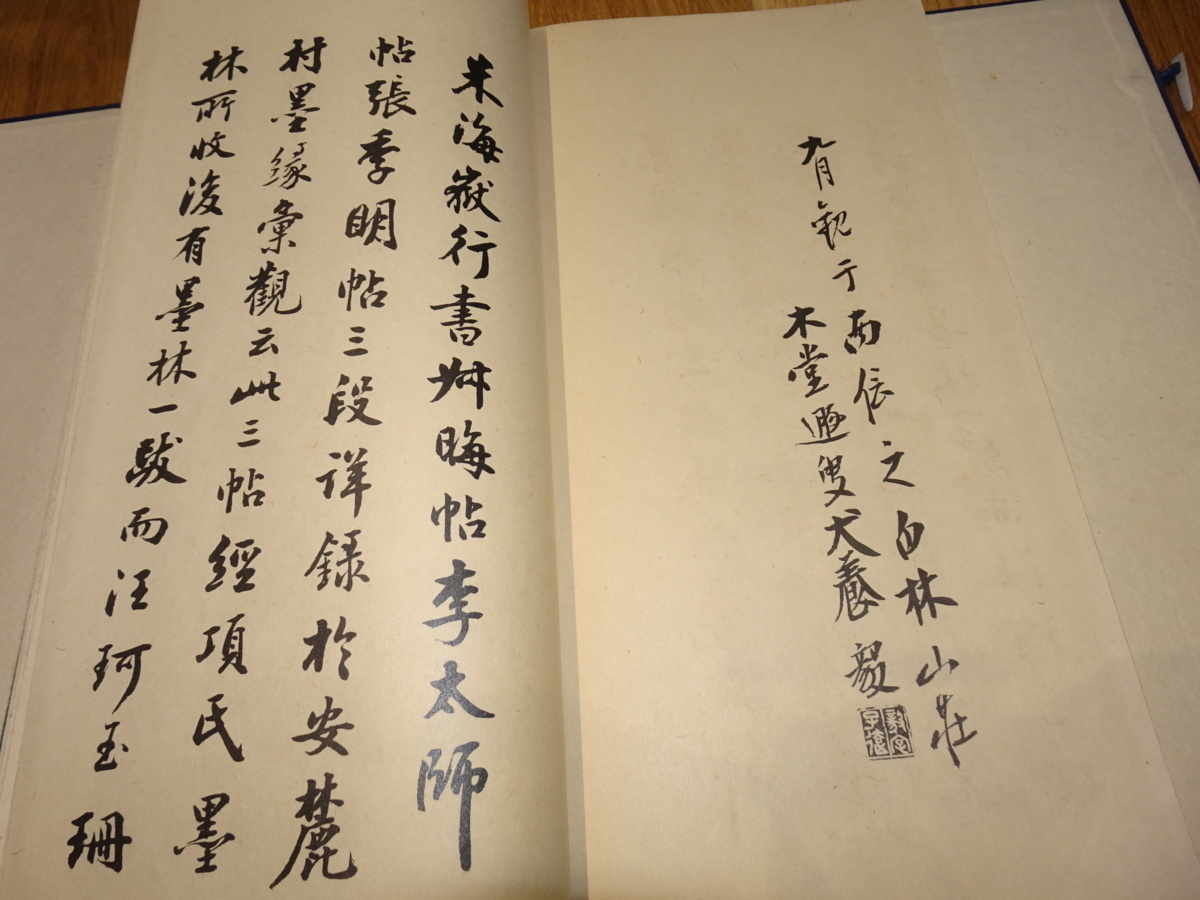 九月観于南信之白林山荘
木堂逓叟犬養毅
米海嶽行書艸晦帖李太師
帖張季明帖三段詳録於安麓
村墨緣彙觀云此三帖經項氏墨
林所收後有墨林一跋而汪珂玉珊